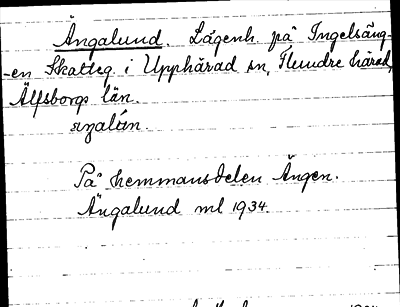 Ängalund. Lägenh. på Ingelsäng-
-en Skatteg i Upphärad sn, Flundre härad,
Älfsborgs län.
På hemmansdelen Ängen.
Ängalund ml 1934.